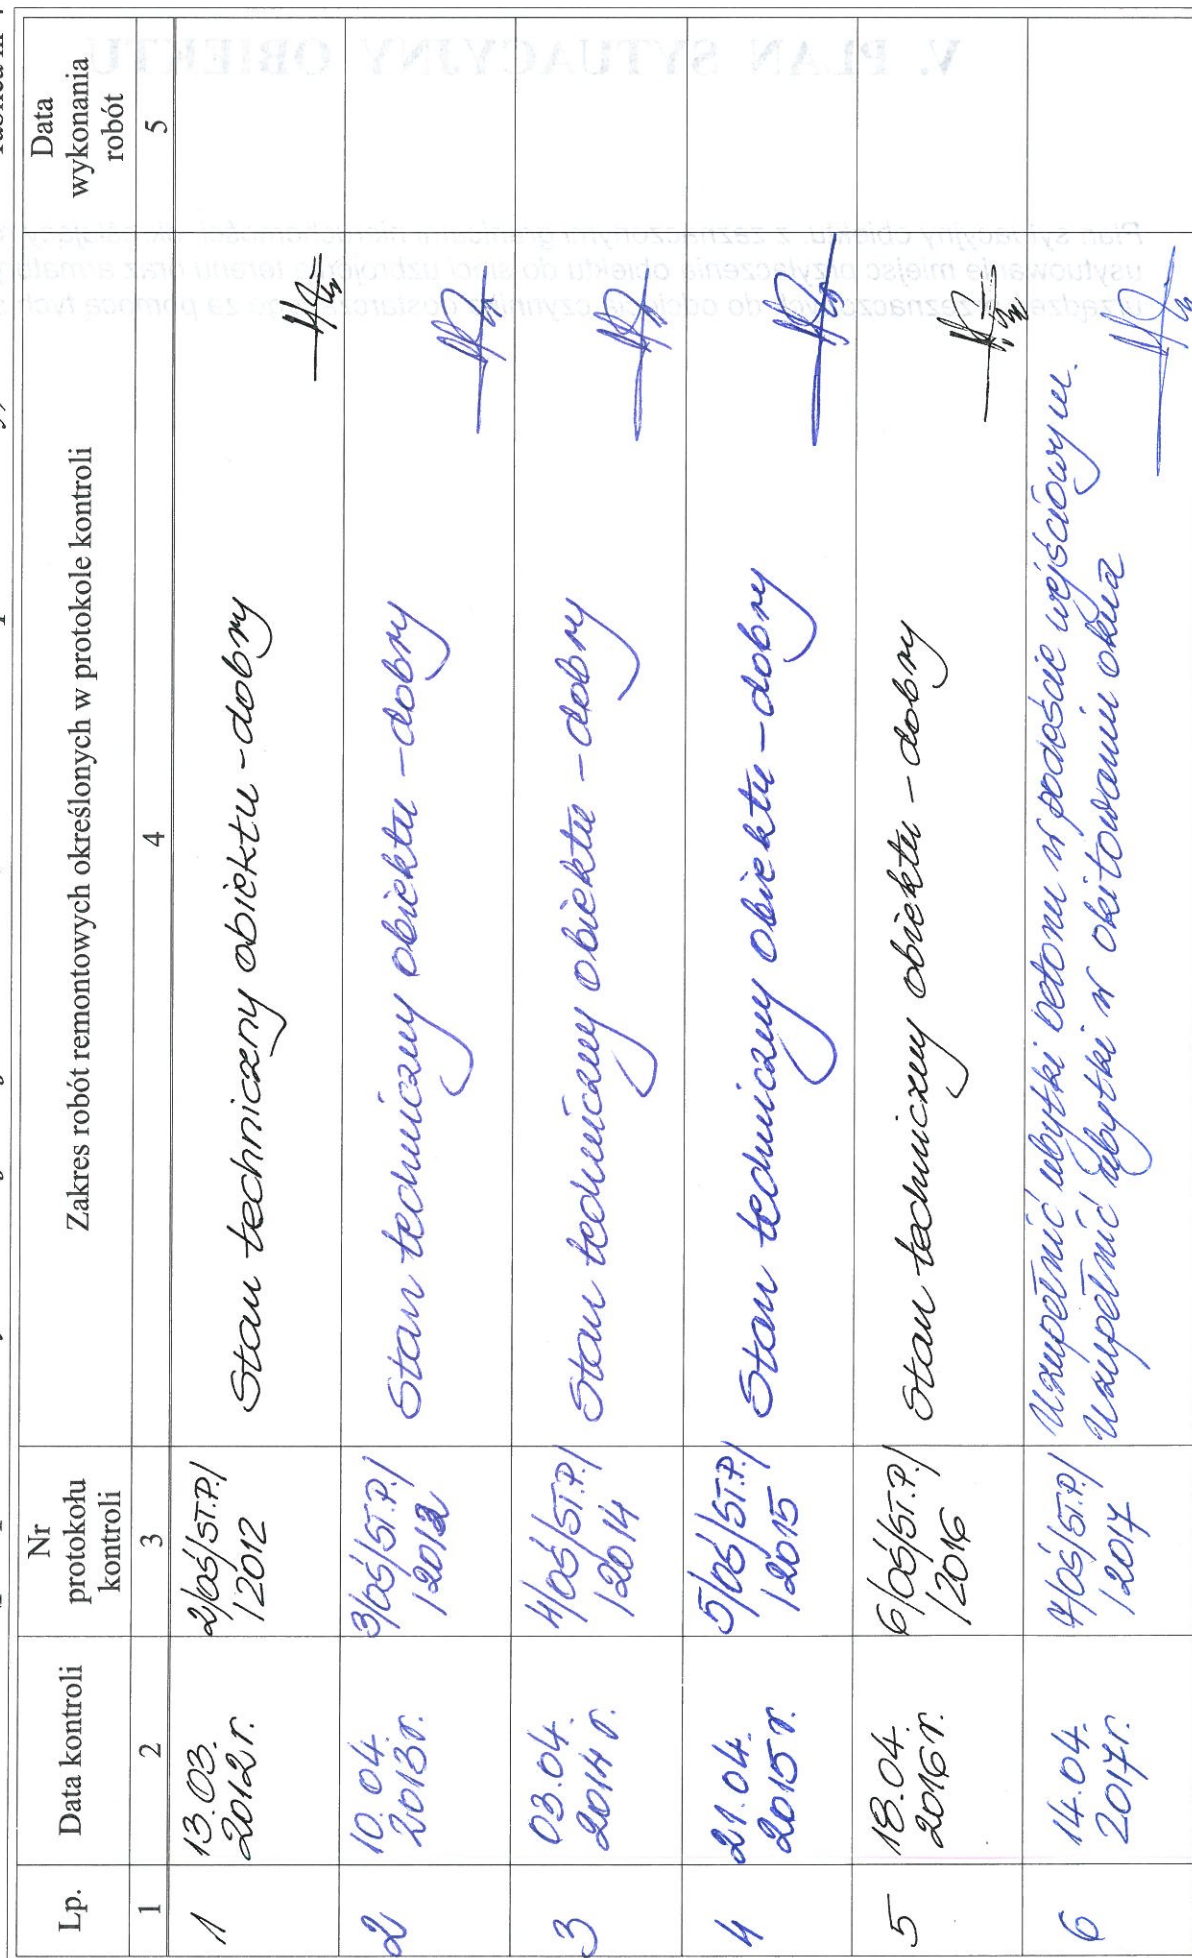 Lp.
Data kontroli
Nr
protokołu
kontroli
Zakres robót remontowych określonych w protokole kontroli
Data
wykonania
robót
1
2
3
4
5
1
13.03.
2012 r.
2/OŚ/ST.P./
/2012
Stan techniczny obiektu - dobry
2
10.04.
2013 r.
3/OŚ/ST.P./
Stan techniczny obiektu - dobry
3
03.04.
2014 r.
4/OŚ/ST.P./
/2014
Stan techniczny obiektu - dobry
4
21.04.
2015 r.
5/OŚ/ST.P./
/2015
Stan techniczny obiektu - dobry
5
18.04.
2016 r.
6/OŚ/ST.P./
/2016
Stan techniczny obiektu - dobry
6
14.04.
2017 r.
7/OŚ/ST.P./
/2017
Uzupełnić ubytki betonu w podeście wejściowym.
Uzupełnić ubytki w okitowaniu okna
V. PLAN SYTUACYJNY OBIEKTU